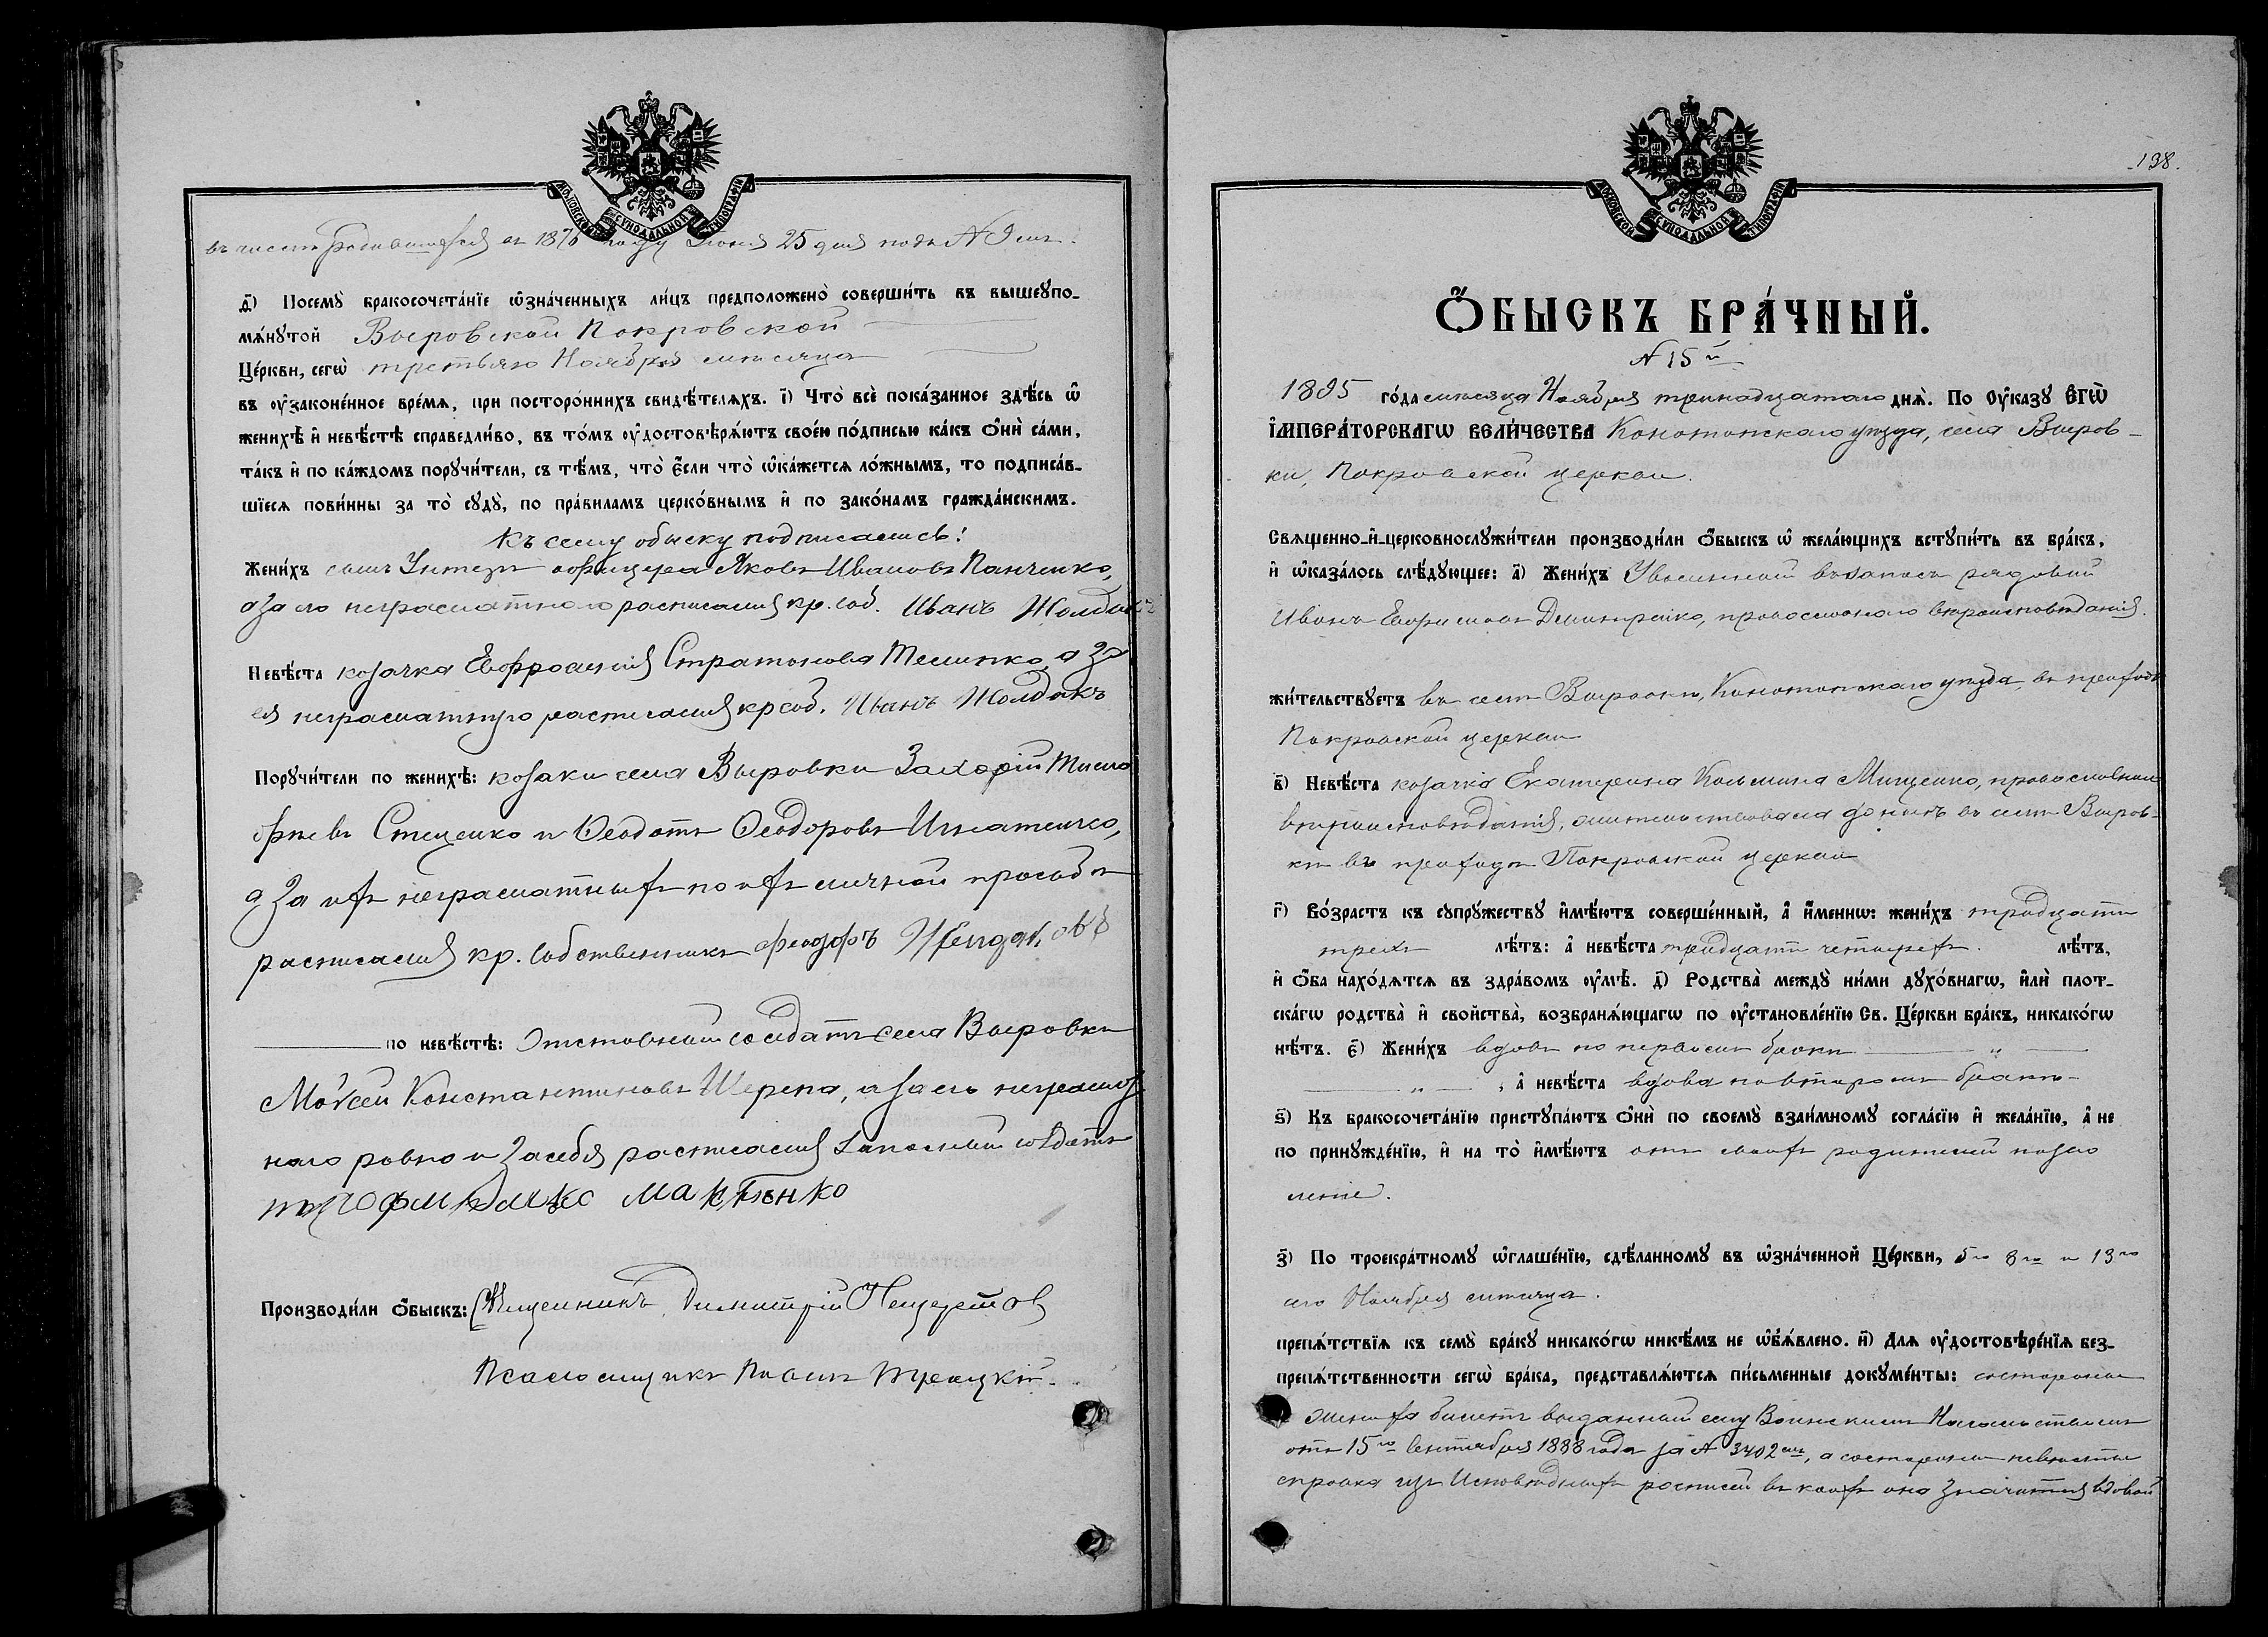 МОСКОВСКОЙ СѴНОДАЛЬНОЙ ТИПОГРАФІИ
въ числѣ родившихся въ 1876 году Іюня 25 дня подъ №
д҃) Посемꙋ̀ бракосочета́нїе ѡ҆зна́ченныхъ ли́цъ предположено̀ соверши́ть въ вышеꙋпо-
мѧ́нꙋтой Выровской Покровской
Це́ркви, сегѡ̀ третьяго Ноября мѣсяца
въ ᲂу҆законе́нное вре́мѧ, при посторо́ннихъ свидѣ́телѧхъ. і҃) Что̀ всѐ пока́занное здѣ́сь ѡ҆
женихѣ̀ и҆ невѣ́стѣ справедли́во, въ то́мъ ᲂу҆достовѣрѧ́ютъ свое́ю по́дписью ка́къ ѻ҆нѝ са́ми,
та́къ и҆ по ка́ждомъ порꙋчи́тели, съ тѣ́мъ, что̀ є҆́сли что̀ ѡ҆ка́жетсѧ ло́жнымъ, то подписа́в-
шїесѧ пови́нны за то̀ сꙋдꙋ̀, по пра́виламъ церко́внымъ и҆ по зако́намъ гражда́нскимъ.
Къ сему обыску подписались:
Жени́хъ сынъ Унтеръ офицера Яковъ Ивановъ Панченко,
а за его неграмотного расписался кр. соб. Иванъ Жолдакъ
Невѣ́ста козачка Евфросинія Стратонова Темченко, а за
ея неграмотную расписался кр соб. Иванъ Жолдакъ
Порꙋчи́тели по женихѣ̀: козаки села Выровки Захарій Тимо
феевъ Стеценко и Ѳеодотъ Ѳеодоровъ Игнатенко,
а за ихъ неграмотныхъ по ихъ личной просьбѣ
расписался кр. собственникъ Феодоръ
по невѣ́стѣ: Отставной солдатъ села Выровки
Моѵсей Константиновъ Шерепа, а за его неграмот
ного ровно и за себя росписался запасный солдатъ
Производи́ли ѻ҆́быскъ: Священникъ Димитрій
Псаломщикъ Павелъ Троицкій.
138.
МОСКОВСКОЙ СѴНОДАЛЬНОЙ ТИПОГРАФІИ
Ѻ҆́БЫСКЪ БРА́ЧНЫЙ.
№ 15й
1895 го́да мѣсяца Ноября тринадцатого днѧ̀. По Оу҆ка́зꙋ Є҆гѡ̀
І҆мпера́торскагѡ вели́чества Конотопского уѣзда, села Выров-
ки, Покровской церкви.
Свѧщенно-и҆-церковнослꙋжи́тели производи́ли ѻ҆́быскъ ѡ҆ жела́ющихъ встꙋпи́ть въ бра́къ,
и҆ ѡ҆каза́лось слѣ́дꙋющее: а҃) Жени́хъ Уволенный въ запасъ рядовой
Иванъ Евфимовъ Дмитренко, православного вѣроисповѣданія.
жи́тельствꙋетъ въ селѣ Выровкѣ, Конотопского уѣзда, въ приходѣ
Покровской церкви
в҃) Невѣ́ста козачка Екатерина Козьмина Мищенко, православного
вѣроисповѣданія, жительствовала донынѣ въ селѣ Выров-
кѣ въ приходѣ Покровской церкви
г҃) Во́зрастъ къ сꙋпрꙋ́жествꙋ и҆мѣ́ютъ соверше́нный, а҆ и҆́меннѡ: жени́хъ тридцати
трехъ лѣ́тъ: а҆ невѣ́ста тридцати четырехъ. лѣ́тъ,
и҆ ѻ҆́ба нахо́дѧтсѧ въ здра́вомъ ᲂу҆мѣ̀. д҃) Родства̀ междꙋ̀ ни́ми дꙋхо́внагѡ, и҆лѝ плот-
ска́гѡ родства̀ и҆ свойства̀, возбранѧ́ющагѡ по ᲂу҆становле́нїю Св. Це́ркви бра́къ, никако́гѡ
нѣ́тъ. є҃) Жени́хъ вдовъ по первомъ бракѣ
„ , а҆ невѣ́ста вдова по второмъ бракѣ
ѕ҃) Къ бракосочета́нїю пристꙋпа́ютъ ѻ҆нѝ по своемꙋ̀ взаи́мномꙋ согла́сїю и҆ жела́нїю, а҆ не
по принꙋжде́нїю, и҆ на то̀ и҆мѣ́ютъ отъ своихъ родителей позво
леніе.
з҃) По троекра́тномꙋ ѡ҆глаше́нїю, сдѣ́ланномꙋ въ ѡ҆зна́ченной Це́ркви, 5го 8го и 13го
сего Ноября мѣсяца.
препѧ́тствїѧ къ семꙋ̀ бра́кꙋ никако́гѡ никѣ́мъ не ѡ҆б̾ѧ́влено. и҃) Длѧ ᲂу҆достовѣре́нїѧ без-
препѧ́тственности сегѡ̀ бра́ка, представлѧ́ютсѧ пи́сьменные докꙋме́нты: со стороны
жениха билетъ выданный ему Воинскимъ Начальствомъ
отъ 15го Сентября 1888 года за № 3402мъ, а со стороны невѣсты
справка изъ Исповѣдныхъ росписей въ коихъ она значится вдовой